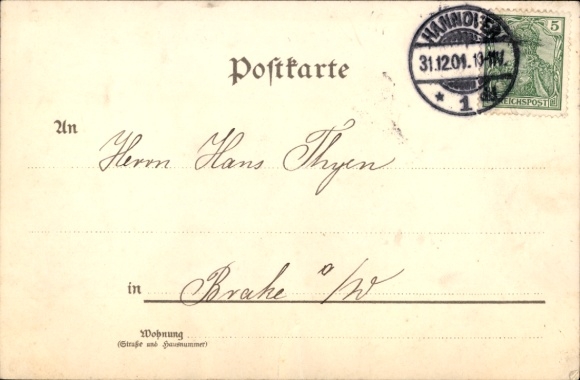 HANNOVER
31.12.01. 10-11V.
* 1 d
5
REICHSPOST
Postkarte
An
Herrn Hans Thyen
in Brake a/W
Wohnung
(Straße und Hausnummer)